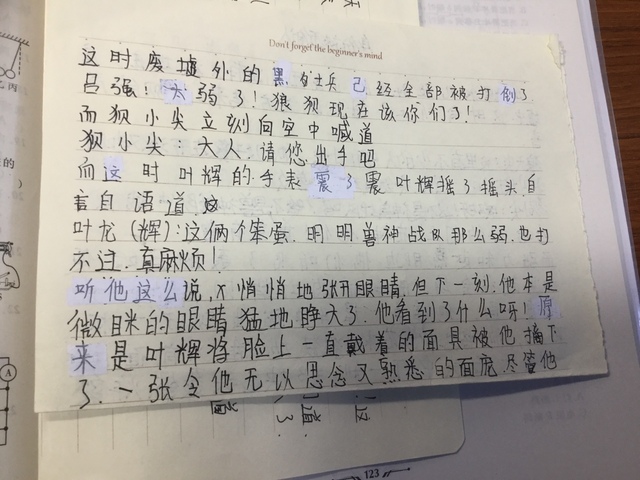 Don't forget the beginner's mind
这时废墟外的黑矿士兵已经全部被打倒了
吕强:太弱了!狼狈现在该你们了!
而狈小尖立刻向空中喊道
狈小尖:大人.请您出手吧
而这时叶辉的手表震了震叶辉摇了摇头.自
言自语道.
叶龙(辉):这俩个笨蛋.明明兽神战队那么弱.也打
不过.真麻烦!
听他这么说,大悄悄地张开眼睛.但下一刻.他本是
微眯的眼睛猛地睁大了.他看到了什么呀!原
来是叶辉将脸上一直戴着的面具被他摘下
了.一张令他无以思念又熟悉的面庞.尽管他
123